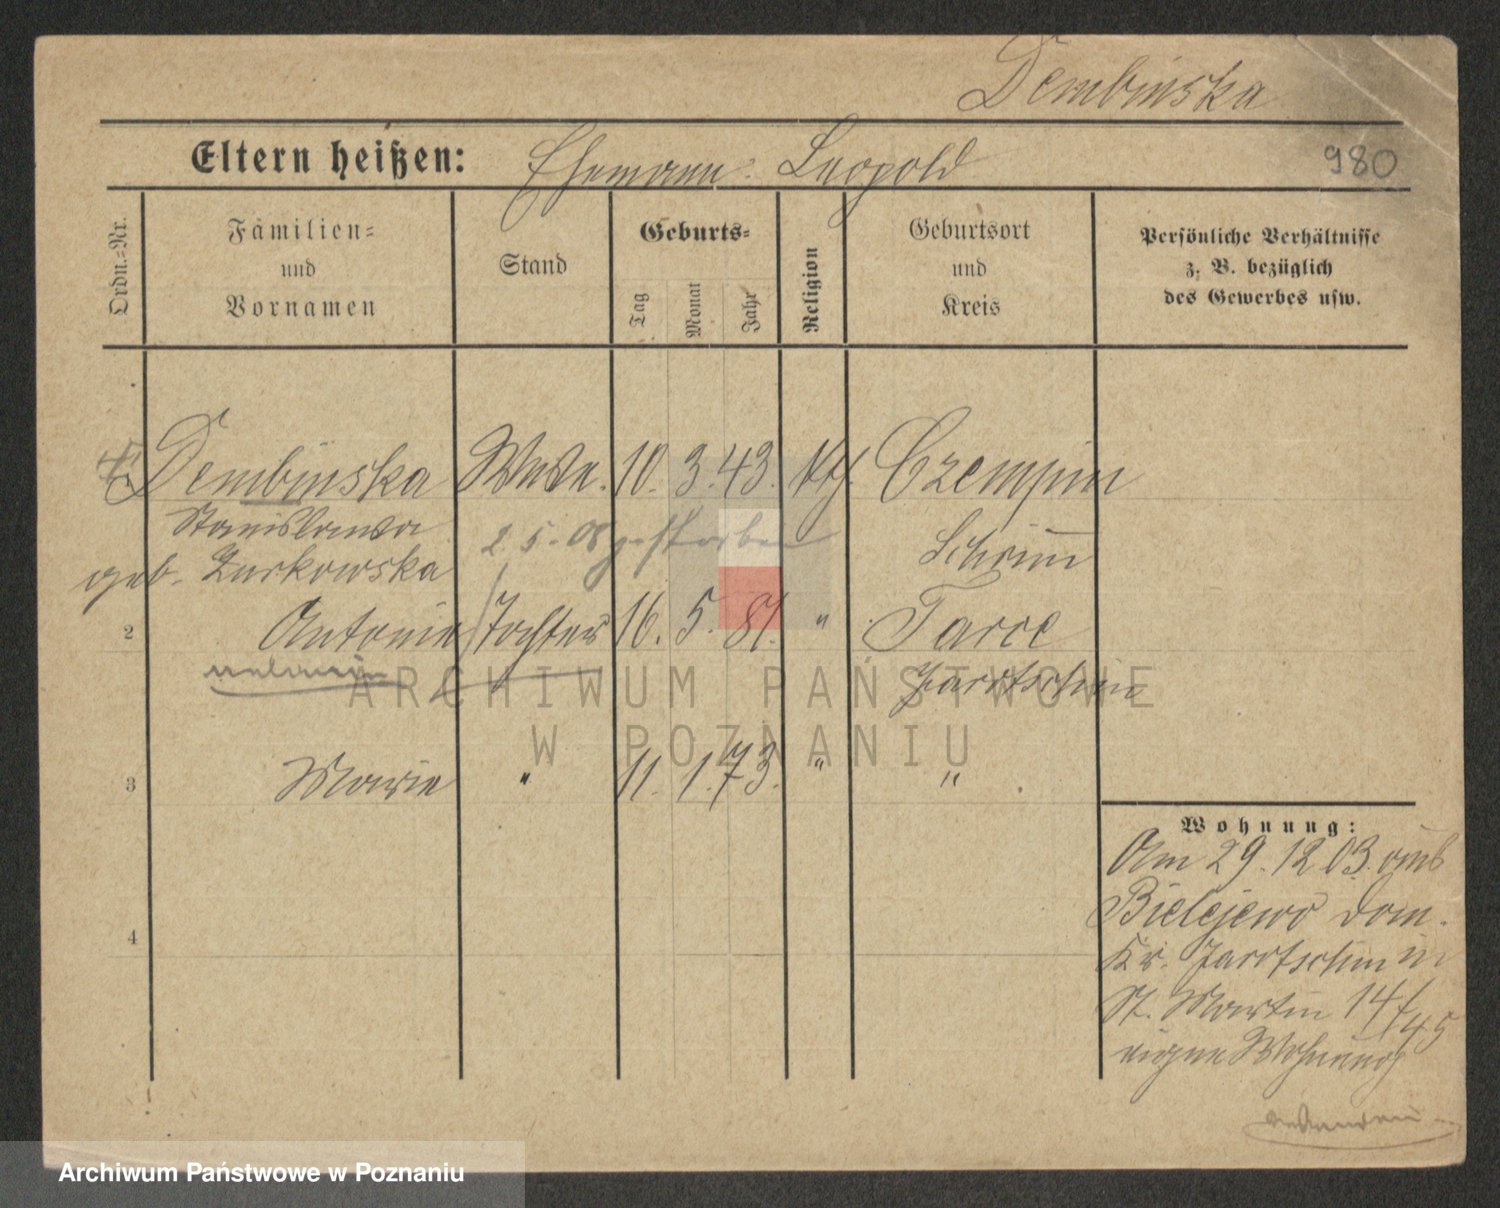 Dembinska
Eltern heißen: Ehemann: Leopold
980
Ordn.=Nr.
Familien=
und
Vornamen
Stand
Geburts=
Tag
Monat
Jahr
Religion
Geburtsort
und
Kreis
Persönliche Verhältnisse
z. B. bezüglich
des Gewerbes usw.
Dembinska Wwe. 10. 3. 43. kth. Czempin
Stanislawa 2. 5. 08 gestorben Schrim
geb. Zurkowska
2 Antonie Tochter 16. 5. 81. " Tarce
Jarotschin
3 Marie " 11. 1. 73. " "
4
Wohnung:
Am 29. 12 03. aus
Bielejewo Dom.
Kr. Jarotschin in
St. Martin 14/
45
eigene Wohnung
ARCHIWUM PAŃSTWOWE
W POZNANIU
Archiwum Państwowe w Poznaniu